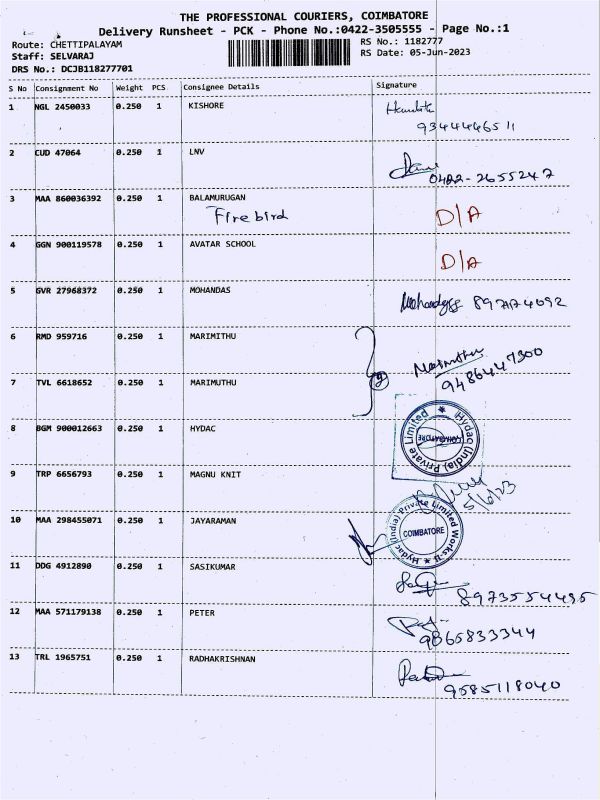 THE PROFESSIONAL COURIERS, COIMBATORE
Delivery Runsheet - PCK - Phone No.:0422-3505555 - Page No.:1
Route: CHETTIPALAYAM
RS No.: 1182777
Staff: SELVARAJ
RS Date: 05-Jun-2023
DRS No.: DCJB118277701
S No Consignment No Weight PCS Consignee Details Signature
1 NGL 2450033 0.250 1 KISHORE
9344446511
2 CUD 47064 0.250 1 LNV
0422-2655247
3 MAA 860036392 0.250 1 BALAMURUGAN
Fire bird D/A
4 GGN 900119578 0.250 1 AVATAR SCHOOL
D/A
5 GVR 27968372 0.250 1 MOHANDAS
Mohandass
6 RMD 959716 0.250 1 MARIMITHU
Marimuthu
9486447300
7 TVL 6618652 0.250 1 MARIMUTHU
8 BGM 900012663 0.250 1 HYDAC
Hydac (India) Private Limited
COIMBATORE
9 TRP 6656793 0.250 1 MAGNU KNIT
5/6/23
10 MAA 298455071 0.250 1 JAYARAMAN
Hydac (India) Private Limited Works-II
COIMBATORE
11 DDG 4912890 0.250 1 SASIKUMAR
8973554495
12 MAA 571179138 0.250 1 PETER
9865833344
13 TRL 1965751 0.250 1 RADHAKRISHNAN
9585118040